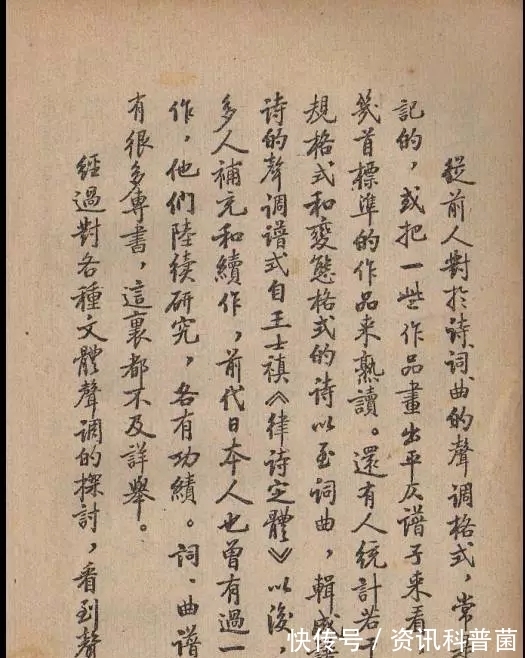 從前人對於诗詞曲的聲调格式，常
記的，或把一些作品畫出平仄谱子来看
幾首標準的作品来熟讀。還有人统計若
規格式和變態格式的诗以至词曲，輯成
诗的聲调谱式自王士禛《律诗定體》以後，
多人補充和續作，前代日本人也曾有過一
作，他們陸續研究，各有功績。詞、曲谱
有很多專書，這裏都不及詳舉。
經過對各種文體聲调的探討，看到聲
快传号 / 资讯科普菌